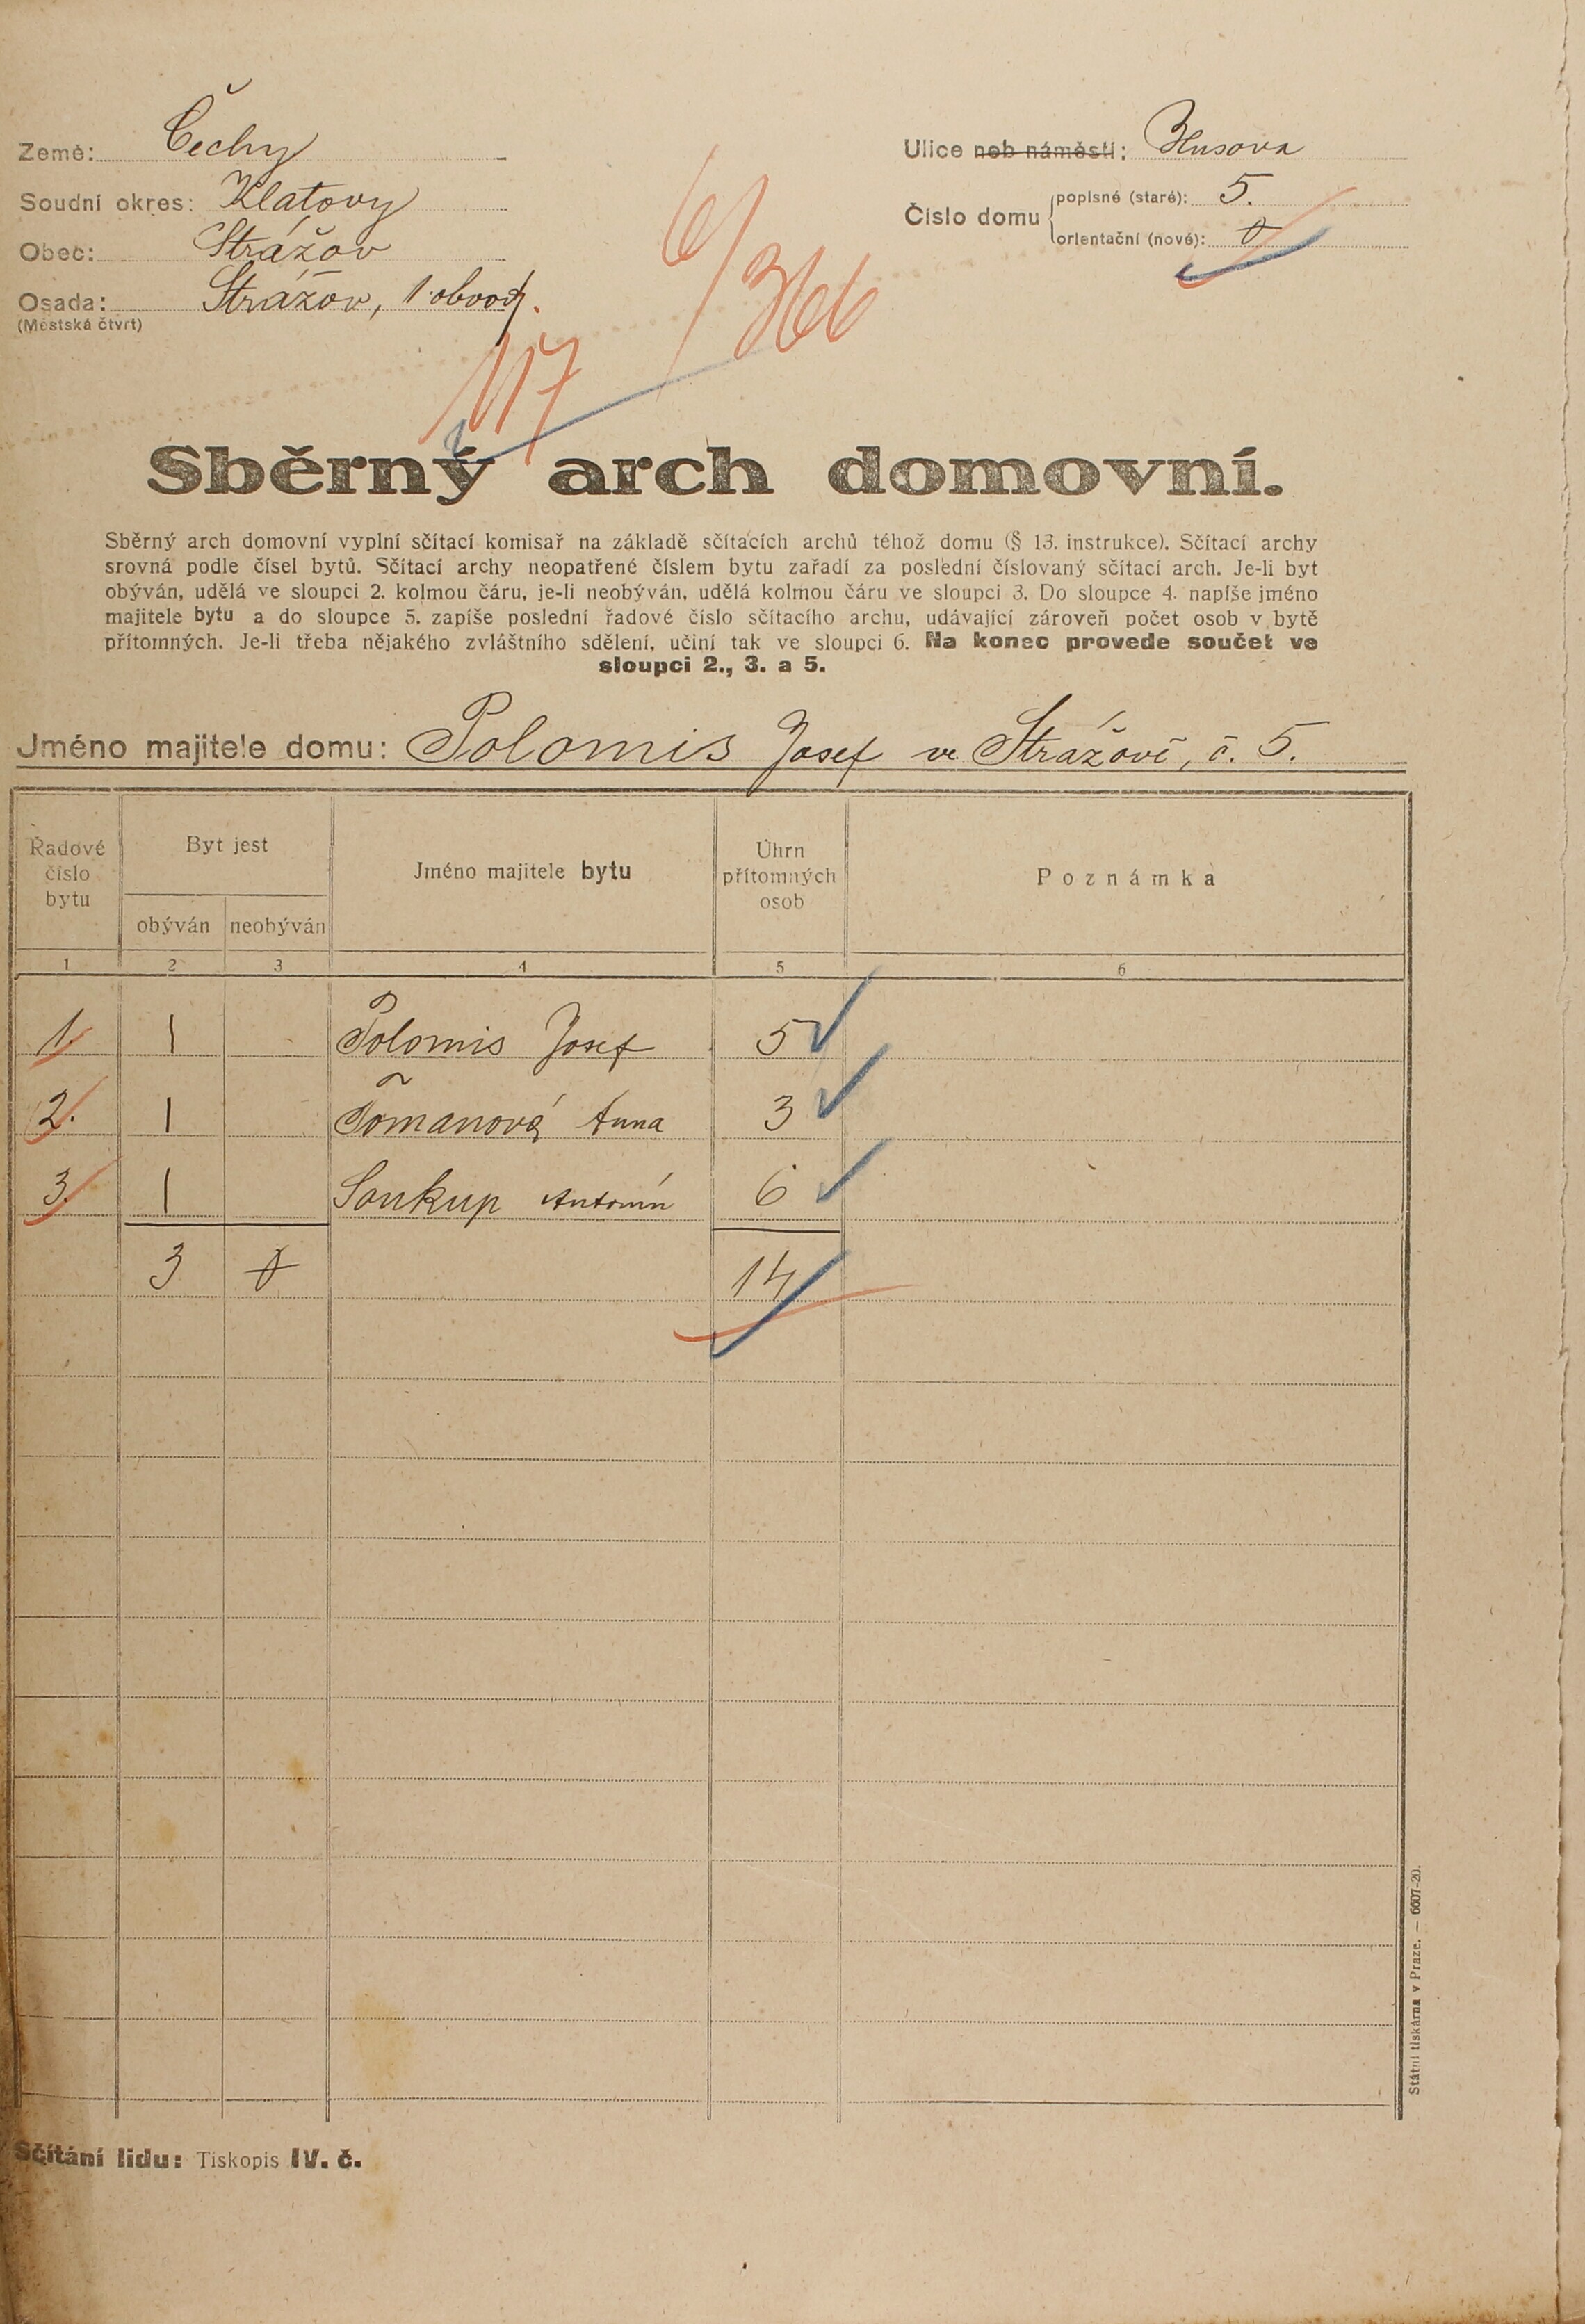 Země: Čechy
Soudní okres: Klatovy
Obec: Strážov
Osada: Strážov, 1. obvod.
(Městská čtvrt)
Ulice neb náměstí: Husova
Číslo domu
popisné (staré): 5.
orientační (nové): 0
6/366
117
Sběrný arch domovní.
Sběrný arch domovní vyplní sčítací komisař na základě sčítacích archů téhož domu (§ 13. instrukce). Sčítací archy
srovná podle čísel bytů. Sčítací archy neopatřené číslem bytu zařadí za poslední číslovaný sčítací arch. Je-li byt
obýván, udělá ve sloupci 2. kolmou čáru, je-li neobýván, udělá kolmou čáru ve sloupci 3. Do sloupce 4. napíše jméno
majitele bytu a do sloupce 5. zapíše poslední řadové číslo sčítacího archu, udávající zároveň počet osob v bytě
přítomných. Je-li třeba nějakého zvláštního sdělení, učiní tak ve sloupci 6. Na konec provede součet ve
sloupci 2., 3. a 5.
Jméno majitele domu: Polomis Josef ve Strážově, č. 5.
Řadové číslo bytu
Byt jest
obýván neobýván
Jméno majitele bytu
Úhrn přítomných osob
Poznámka
1 2 3 4 5 6
1. 1 Polomis Josef 5
2. 1 Tomanová Anna 3
3. 1 Soukup Antonín 6
3 0 14
Státní tiskárna v Praze. — 6607-20.
Sčítání lidu: Tiskopis IV. č.